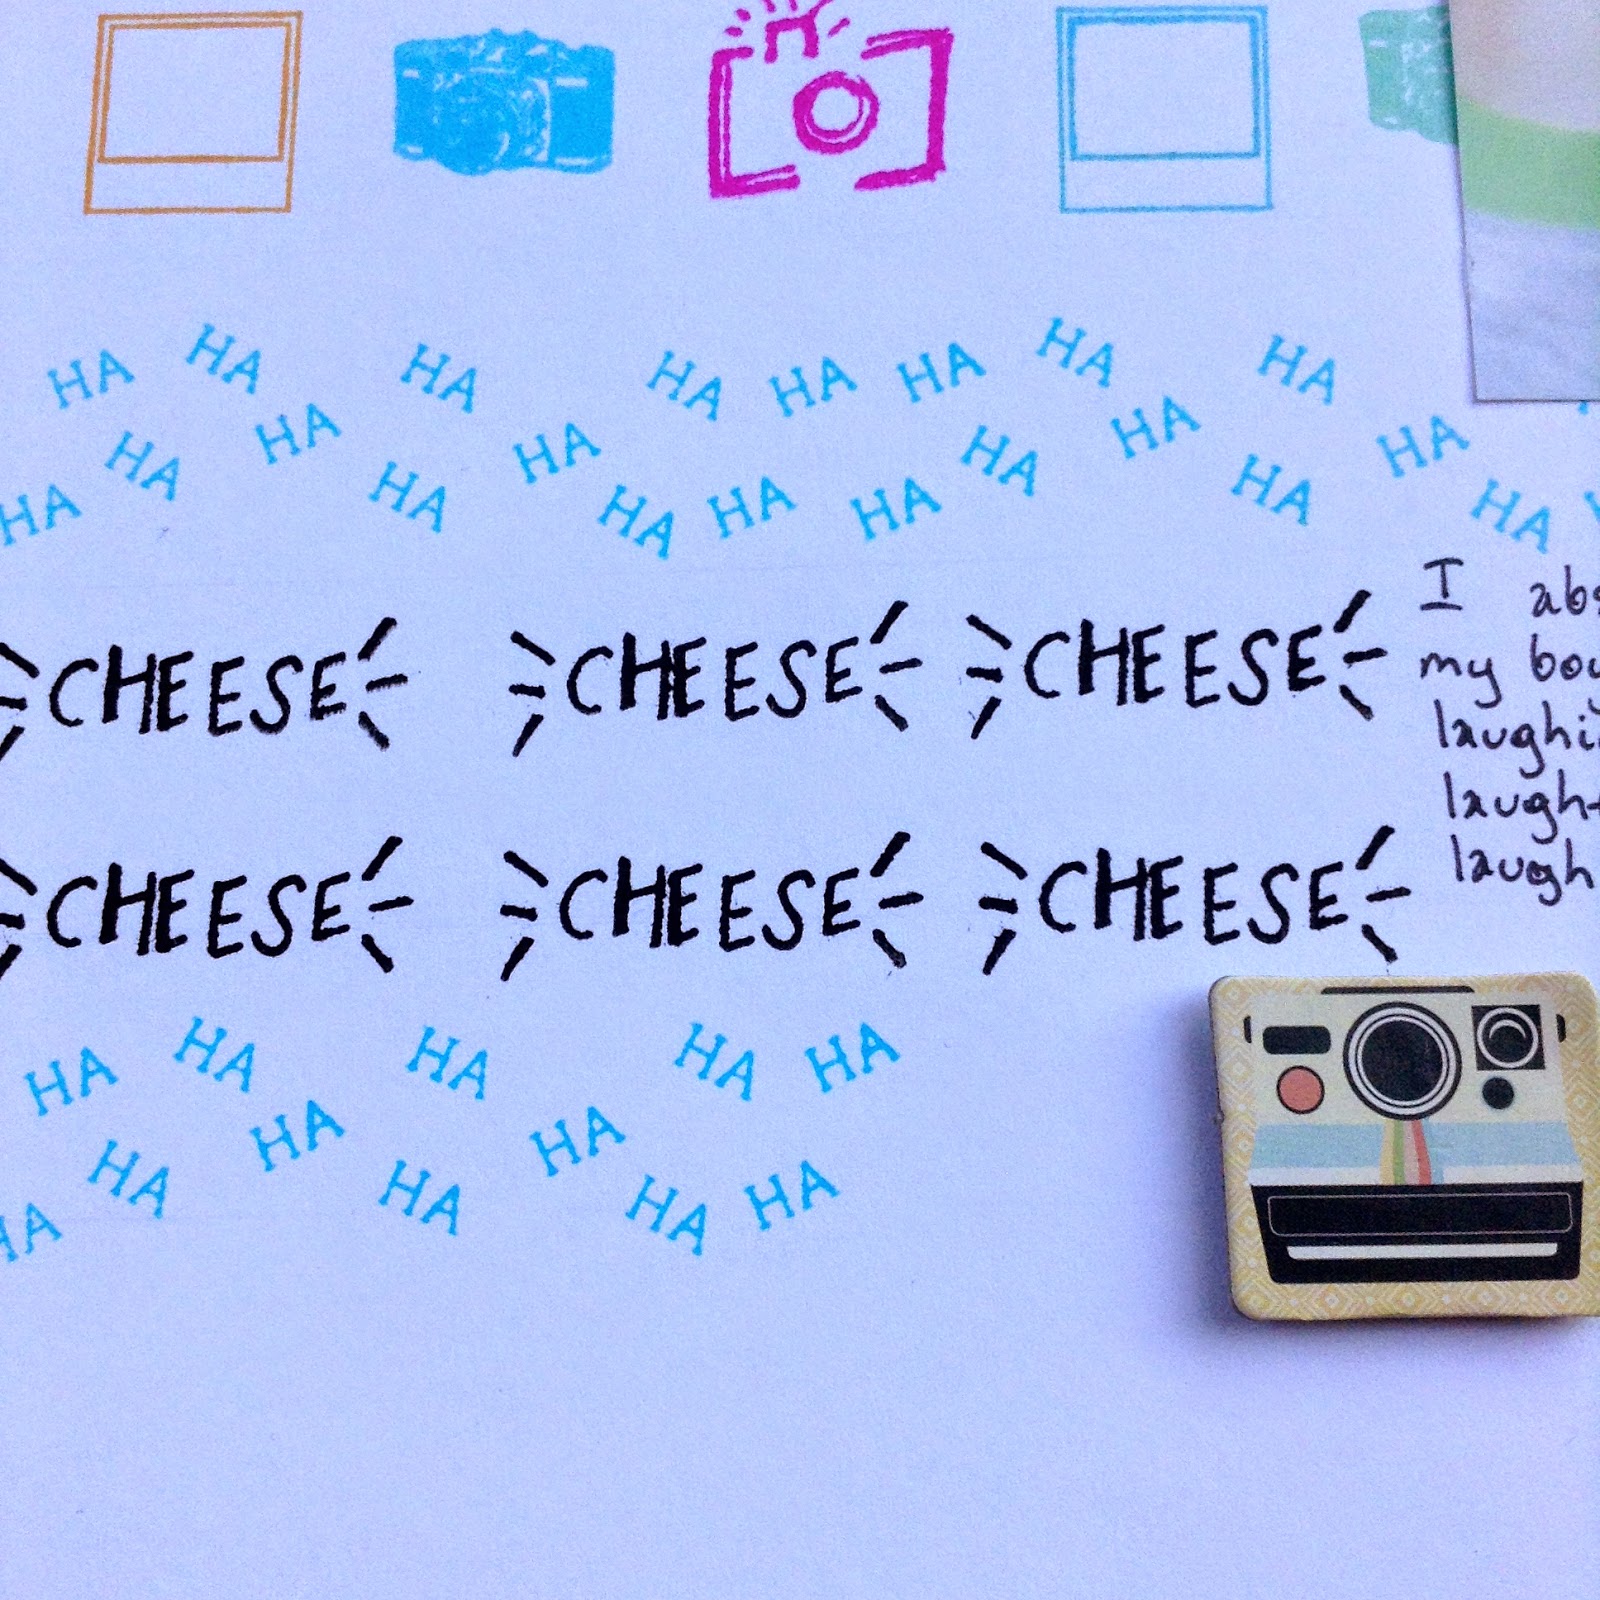 HA HA HA HA HA HA HA HA
HA HA HA HA HA HA HA HA HA HA HA HA HA
CHEESE CHEESE CHEESE
CHEESE CHEESE CHEESE
I abs
my boy
laughi
laught
laugh
HA HA HA HA HA
HA HA HA HA HA HA HA